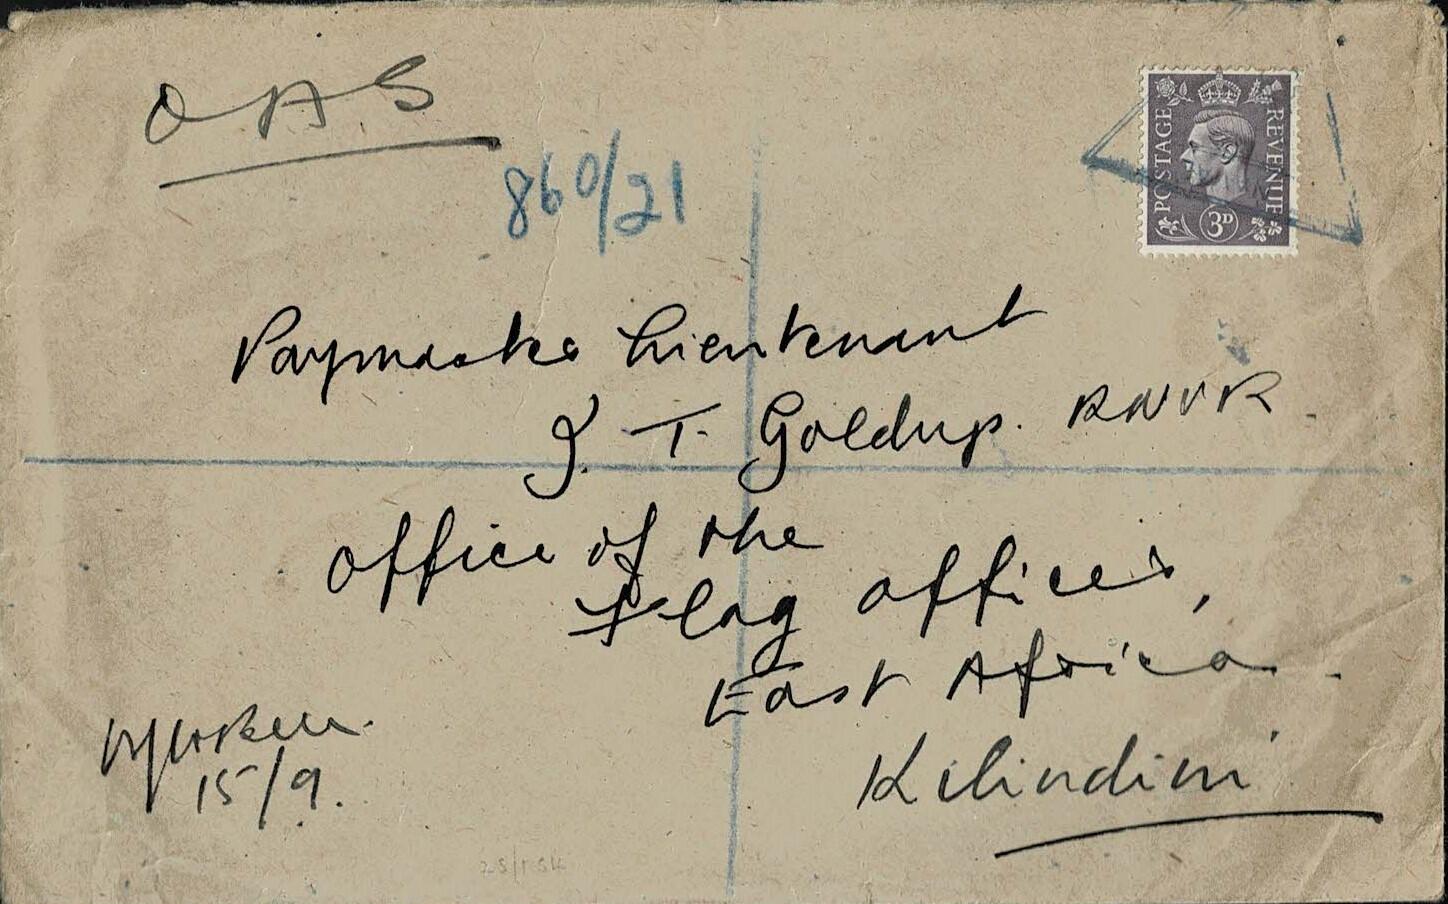 OAS
860/21
POSTAGE REVENUE
3D
Paymaster Lieutenant
J. T. Goldup. RNVR.
Office of the
Flag Officer,
East Africa.
Kilindini
15/9.